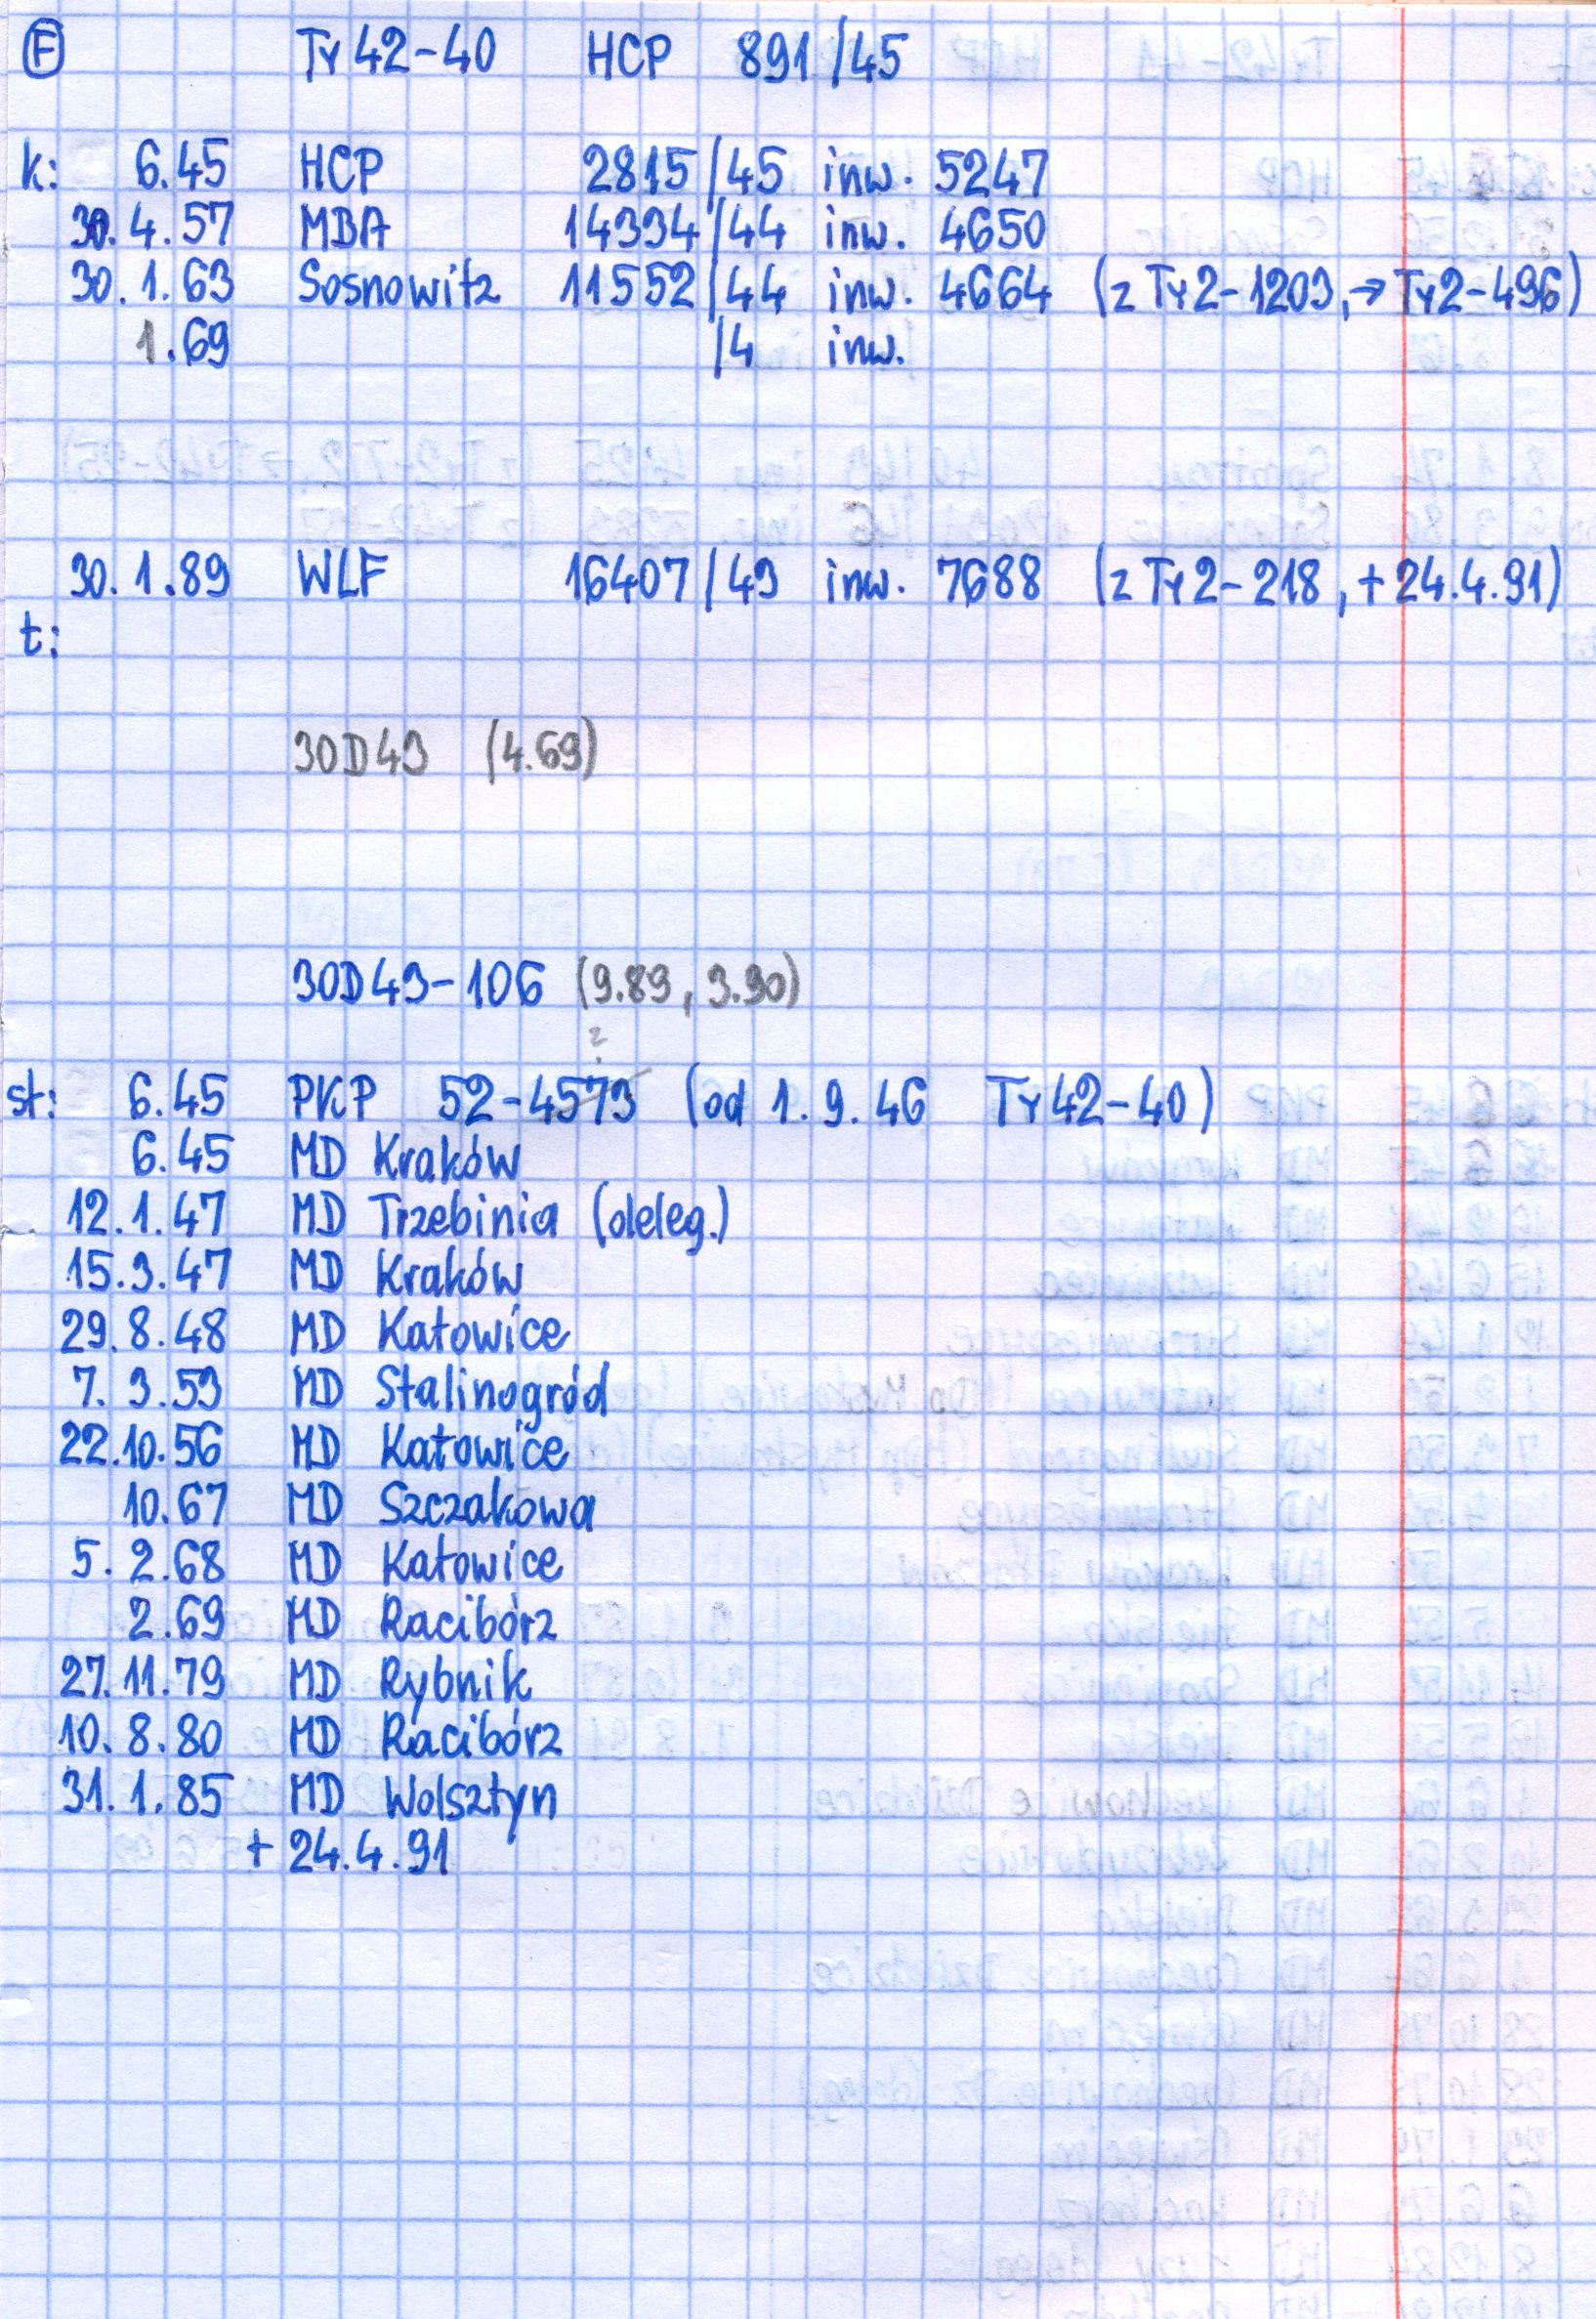 F Ty42-40 HCP 891/45
k: 6.45 HCP 2815/45 inw. 5247
30.4.57 MBA 14334/44 inw. 4650
30.1.63 Sosnowitz 11552/44 inw. 4664 (z Ty2-1203, → Ty2-496)
1.69 /4 inw.
30.1.89 WLF 16407/43 inw. 7688 (z Ty2-218, + 24.4.91)
t:
30D43 (4.69)
30D43-106 (9.89, 3.90)
?
st: 6.45 PKP 52-4573 (od 1.9.46 Ty42-40)
6.45 MD Kraków
12.1.47 MD Trzebinia (deleg.)
15.3.47 MD Kraków
29.8.48 MD Katowice
7.3.53 MD Stalinogród
22.10.56 MD Katowice
10.67 MD Szczakowa
5.2.68 MD Katowice
2.69 MD Racibórz
27.11.79 MD Rybnik
10.8.80 MD Racibórz
31.1.85 MD Wolsztyn
+ 24.4.91